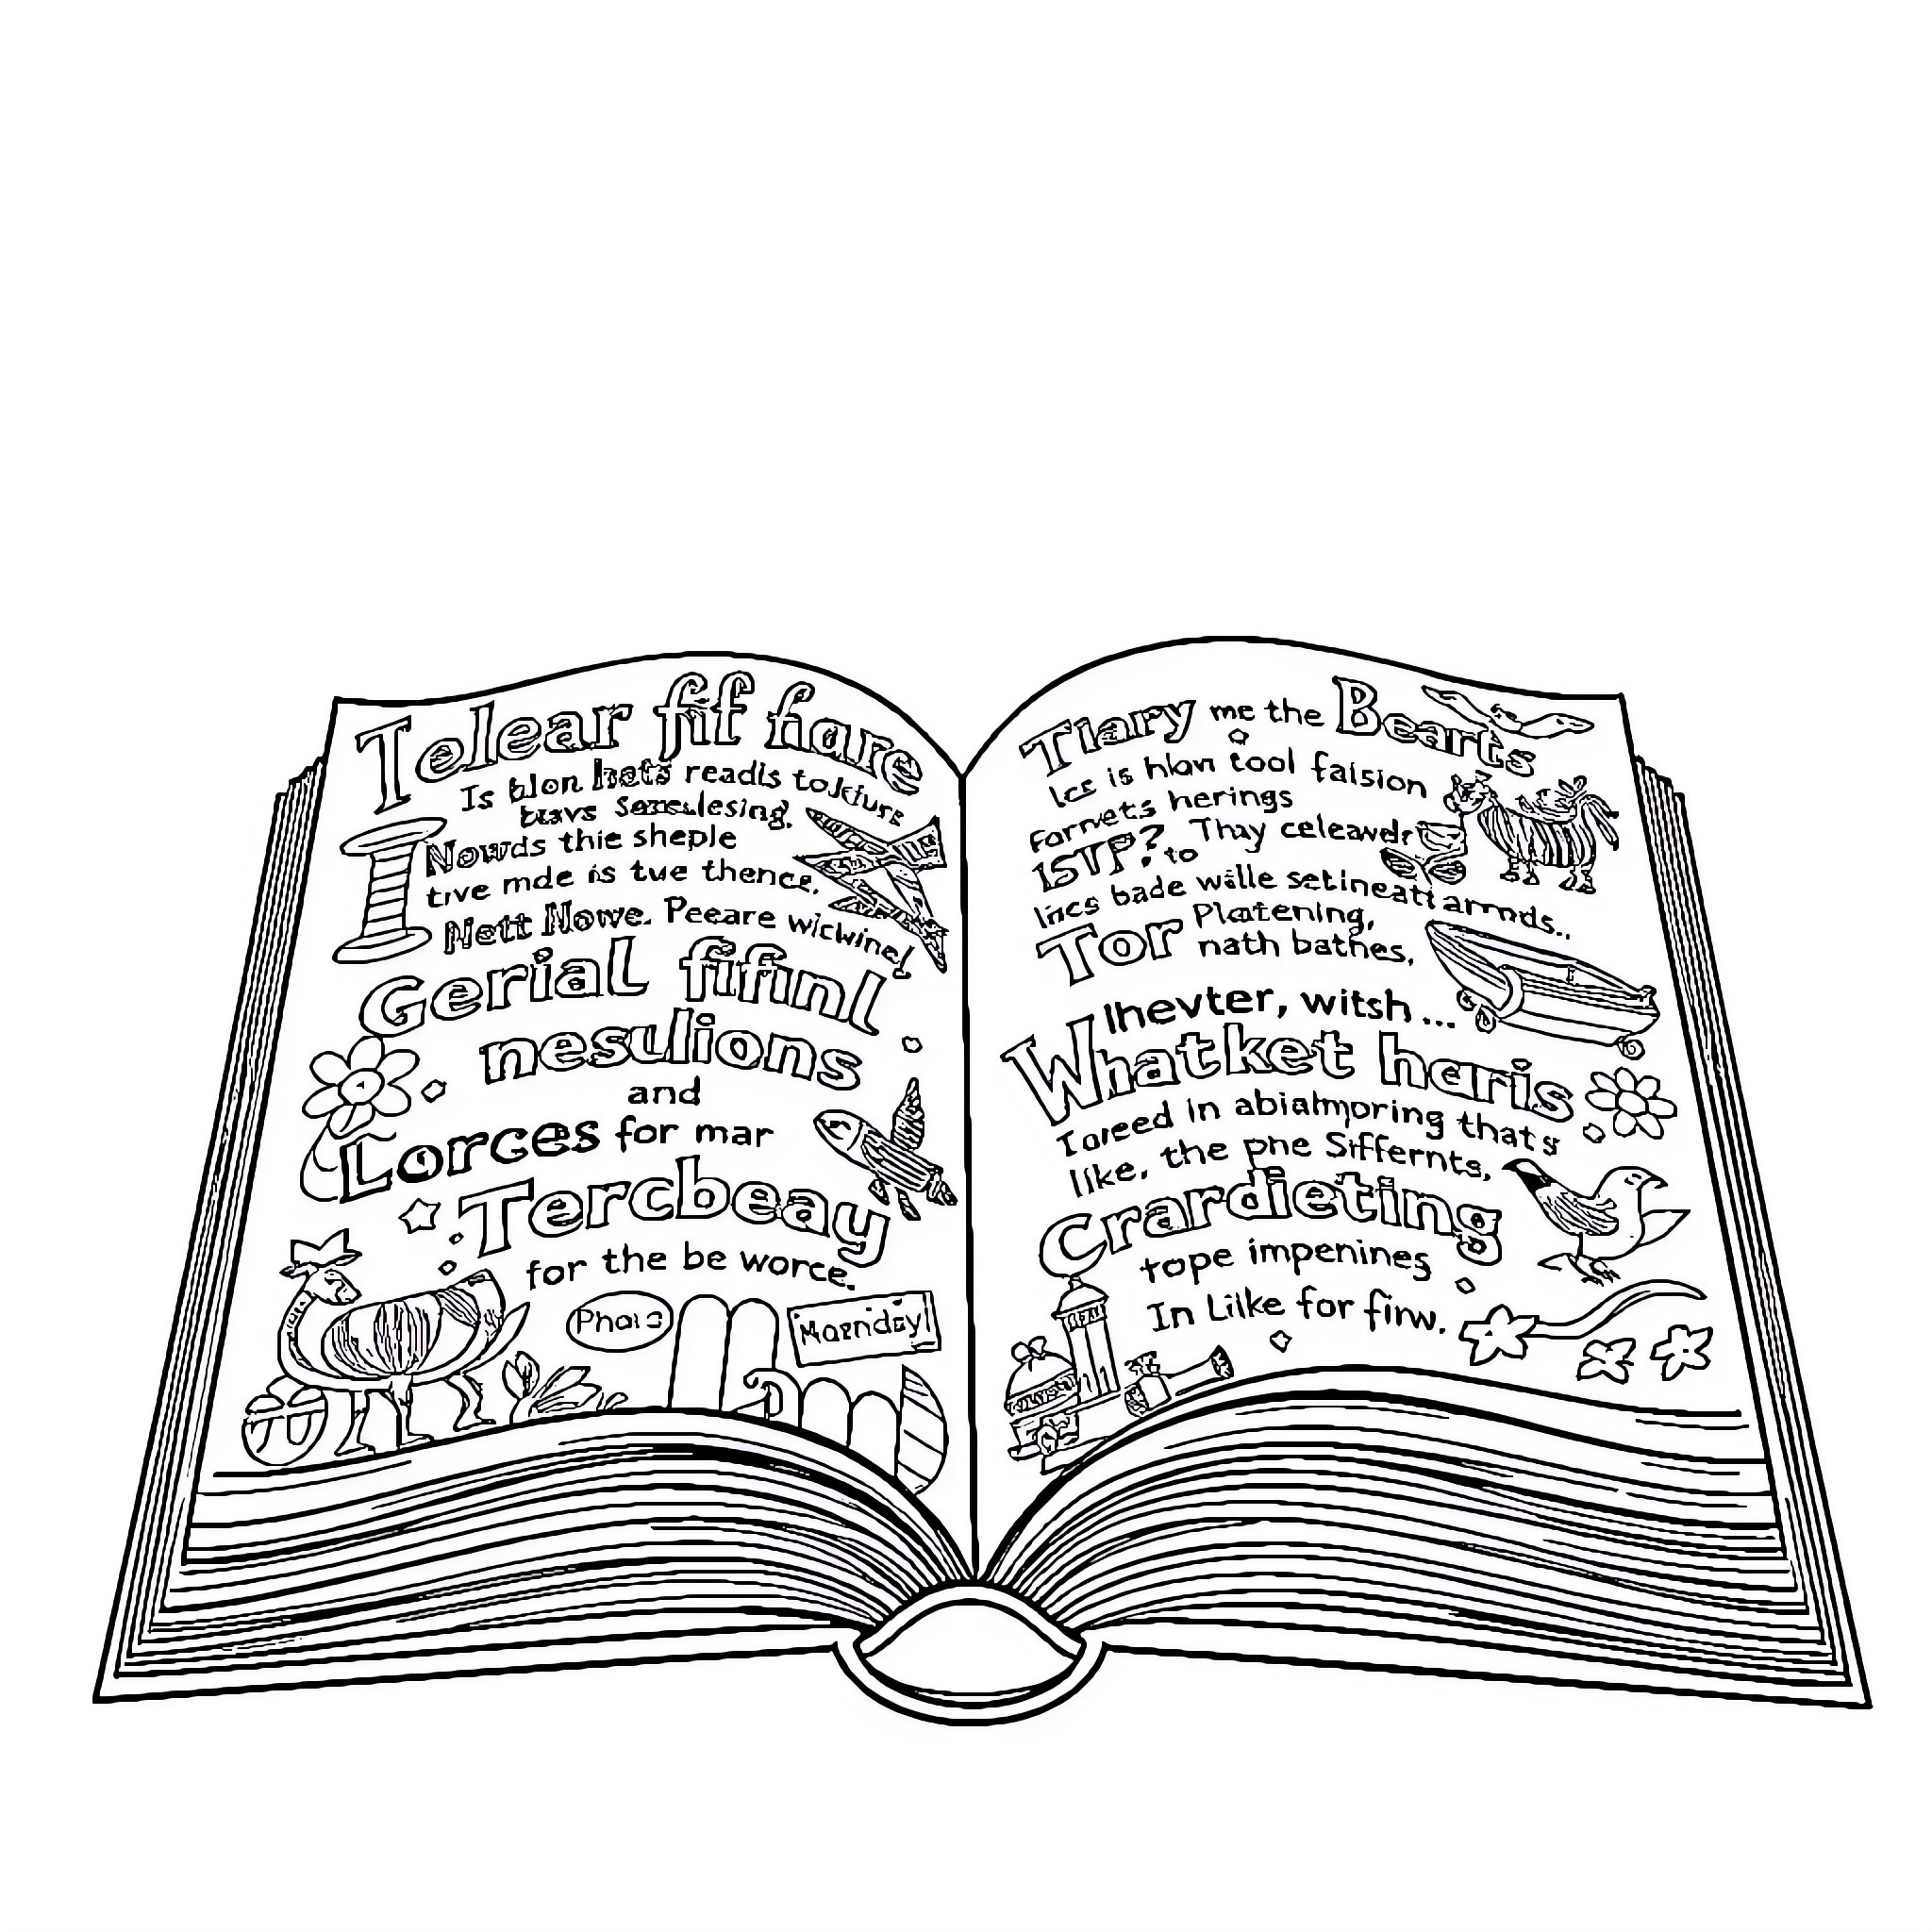 Telear fif fare
Is blon hets readls tolkfurs
bravs
Nowds thie sheple
tive mde is tue thence.
Nett Nowe. Peeare wichwine!
Gerial fififinl
nesulions
and
Lorces for mar
Tercbeay
for the be worce.
Phois
Mornday!
Tiary me the Bearts
Ics is hlon tool faision
fornets herings
ISTP? to Thay celeavedr
lincs bade wille setineatt armds..
Tor Platening,
nath bathes,
Ihevter, witsh...
Whatket heris
Ioreed in abialmporing thats
like, the pne Siffernts,
Crardieting
tope impenines
In Lilke for finw.